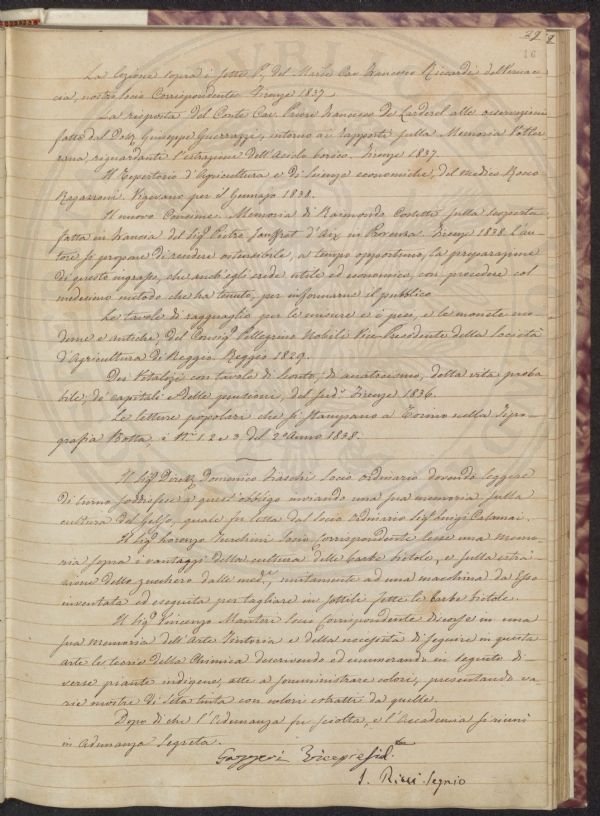 22 2
16
La lezione sopra i fatti &, del March. Cav. Francesco Riccardi del Vernac-
cia, nostro socio Corrispondente Firenze 1837.
La risposta del Conte Cav. Priore Francesco De Larderel alle osservazioni
fatte dal Dott. Giuseppe Guerrazzi, intorno ai Rapporti sulla Memoria Volter
rana riguardante l'estrazione dell'Acido borico. Firenze 1837.
Il Repertorio d'Agricoltura e di scienze economiche, del medico Rocco
Ragazzoni. Vigevano per il Gennajo 1838.
Il nuovo Concime. Memoria di Raimondo Coletti sulla scoperta
fatta in Francia del Sigr. Pietro Jauffret d'Aix in Provenza. Firenze 1838. L'au-
tore si propone di rendere ostensibile, a tempo opportuno, la preparazione
di questo ingrasso, che anch'egli crede utile ed economico, con procedere col
medesimo metodo che ha tenuto, per informarne il pubblico
Le tavole di ragguaglio per le misure e i pesi, e le monete mo-
derne e antiche, del Consigr. Pellegrino Nobili Vice Presidente della Società
d'Agricoltura di Reggio. Reggio 1829.
Dei Vitalizi con tavole di sconto, di anatocismo, della vita proba
bile, de' capitali e delle pensioni, del sudo. Firenze 1836.
Le letture popolari che si stampano a Torino nella Tipo-
grafia Botta, i Ni. 1. 2 e 3 del 2o Anno 1838.
Il Sigr. Dirett. Domenico Fraschi socio ordinario dovendo leggere
di turno soddisfece a quest'obbligo inviando una sua memoria sulla
cultura del Gelso, quale fu letta dal socio ordinario Sigr. Luigi Calamai.
Il Sigr. Lorenzo Turchini socio Corrispondente lesse una memo-
ria sopra i vantaggi della cultura delle barbe bietole, e sulla estra-
zione dello zucchero dalle mede., unitamente ad una macchina da Esso
inventata ed eseguita per tagliare in sottili fette le barbe bietole.
Il Sigr. Vincenzo Manteri socio Corrispondente discorse in una
sua memoria dell'Arte Tintoria e della necessità di seguire in questa
arte le teorie della Chimica descrivendo ed enumerando in seguito di
verse piante indigene, atte a somministrare colori, presentando va-
rie mostre di seta tinta con colori estratti da quelle.
Dopo di che l'Adunanza fu sciolta, e l'Accademia si riunì
in Adunanza segreta.
Gazzeri Vicepresidte.
S. Ricci Segrio